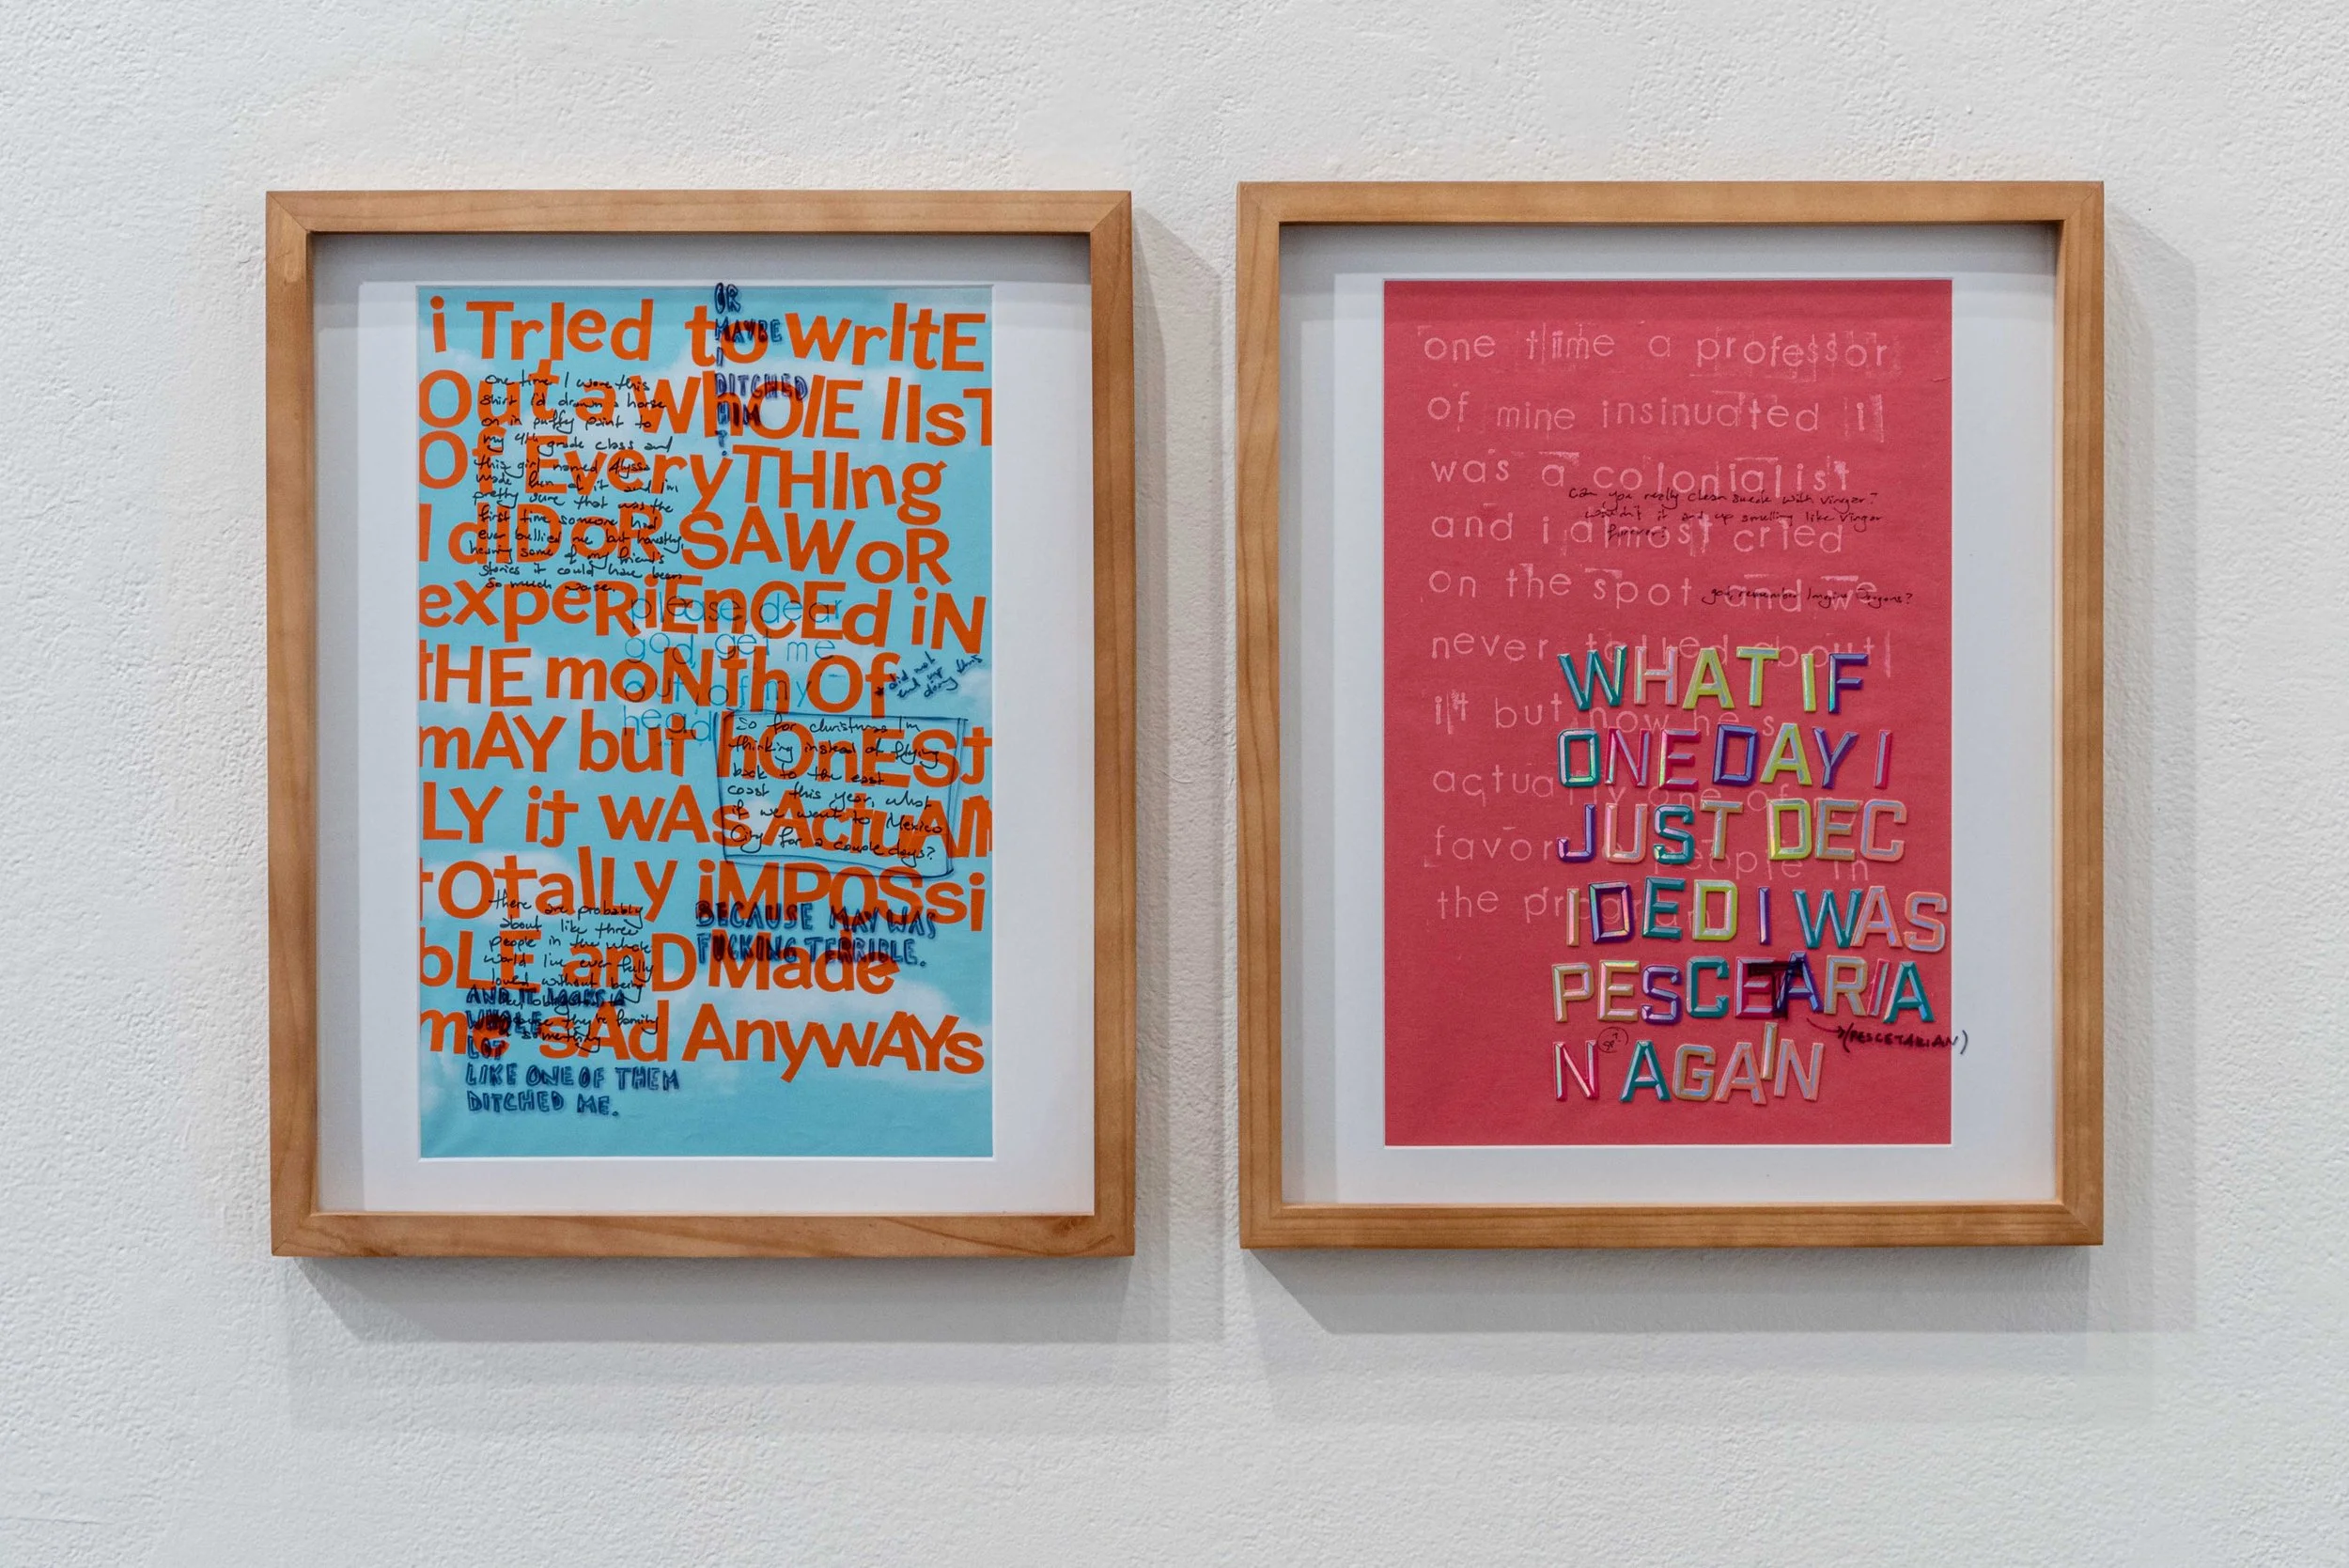 i TrIed to wrItE
Out a WhOlE lIsT
Of EveryTHIng
I dIDoR SAW oR
experiEnCEd iN
tHE moNthOf
mAY but hOnESt
LY it wAs ActuAll
tOtalLy iMPOSsi
bLE anD Made
me sAd AnywAYs
OR
MAYBE
I
DITCHED
HIM
?
One time I wore this
shirt I'd drawn a horse
on in puffy paint to
my 4th grade class and
this girl named Alyssa
made fun of it and I'm
pretty sure that was the
first time someone had
ever bullied me but honestly,
hearing some of my friend's
stories it could have been
so much worse.
please dear
god, get me
out of my
head
did not
end up
doing this
so for christmas I'm
thinking instead of flying
back to the east
coast this year, what
if we went to Mexico
City for a couple days?
BECAUSE MAY WAS
FUCKING TERRIBLE.
there are probably
about like three
people in the whole
world I've ever fully
loved without being
they're family
something
AND IT LOOKS A
WHOLE
LOT
LIKE ONE OF THEM
DITCHED ME.
one time a professor
of mine insinuated i
was a colonialist
and i almost cried
on the spot and we
never talked about
it but now he s
actually one of
favor people in
the program
can you really clean suede with vinegar?
wouldn't it end up smelling like vinegar
forever?
god, remember Imagine Dragons?
WHAT IF
ONE DAY I
JUST DEC
IDED I WAS
PESCETARIA
N AGAIN
(PESCETARIAN)